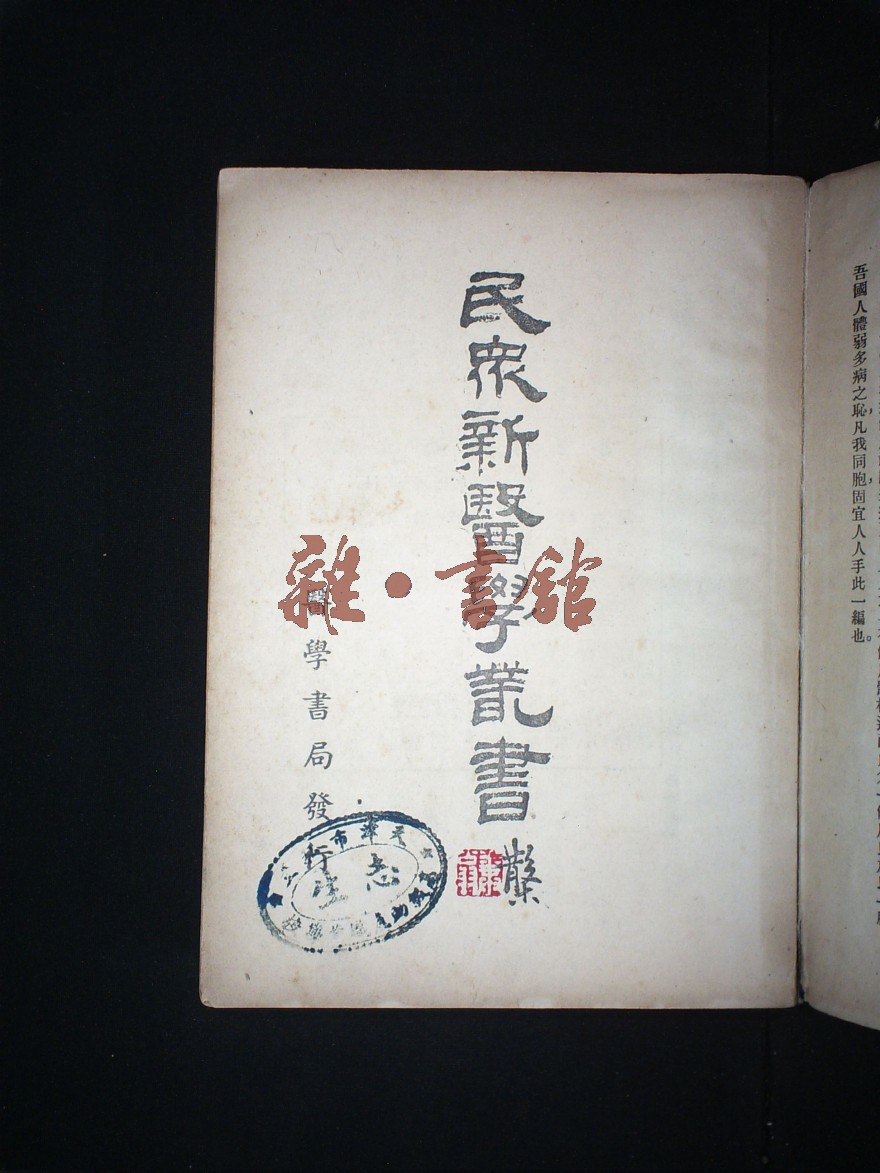 吾國人體弱多病之恥，凡我同胞，固宜人人手此一編也。
民眾新醫學叢書
醫學書局發行
天津市
志生
雜·書舘